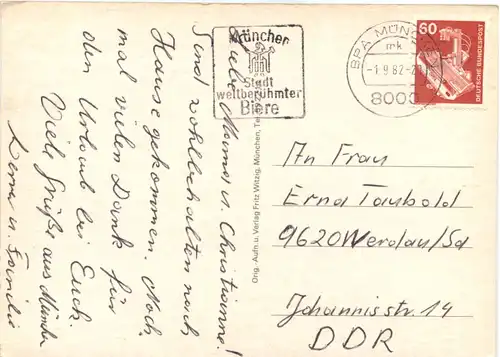 Liebe Mama u. Christianne!
Sind wohlbehalten nach
Hause gekommen. Noch
mal vielen Dank für
den Urlaub bei Euch.
Viele Grüße aus München
u. Familie
München
Stadt
weltberühmter
Biere
BPA MÜNC
mk
-1.9.82-20
8000
60
DEUTSCHE BUNDESPOST
Orig.-Aufn. u. Verlag Fritz Witzig, München, Te
An Frau
Erna Taubold
9620 Werdau/Sa
Johannisstr. 14
DDR